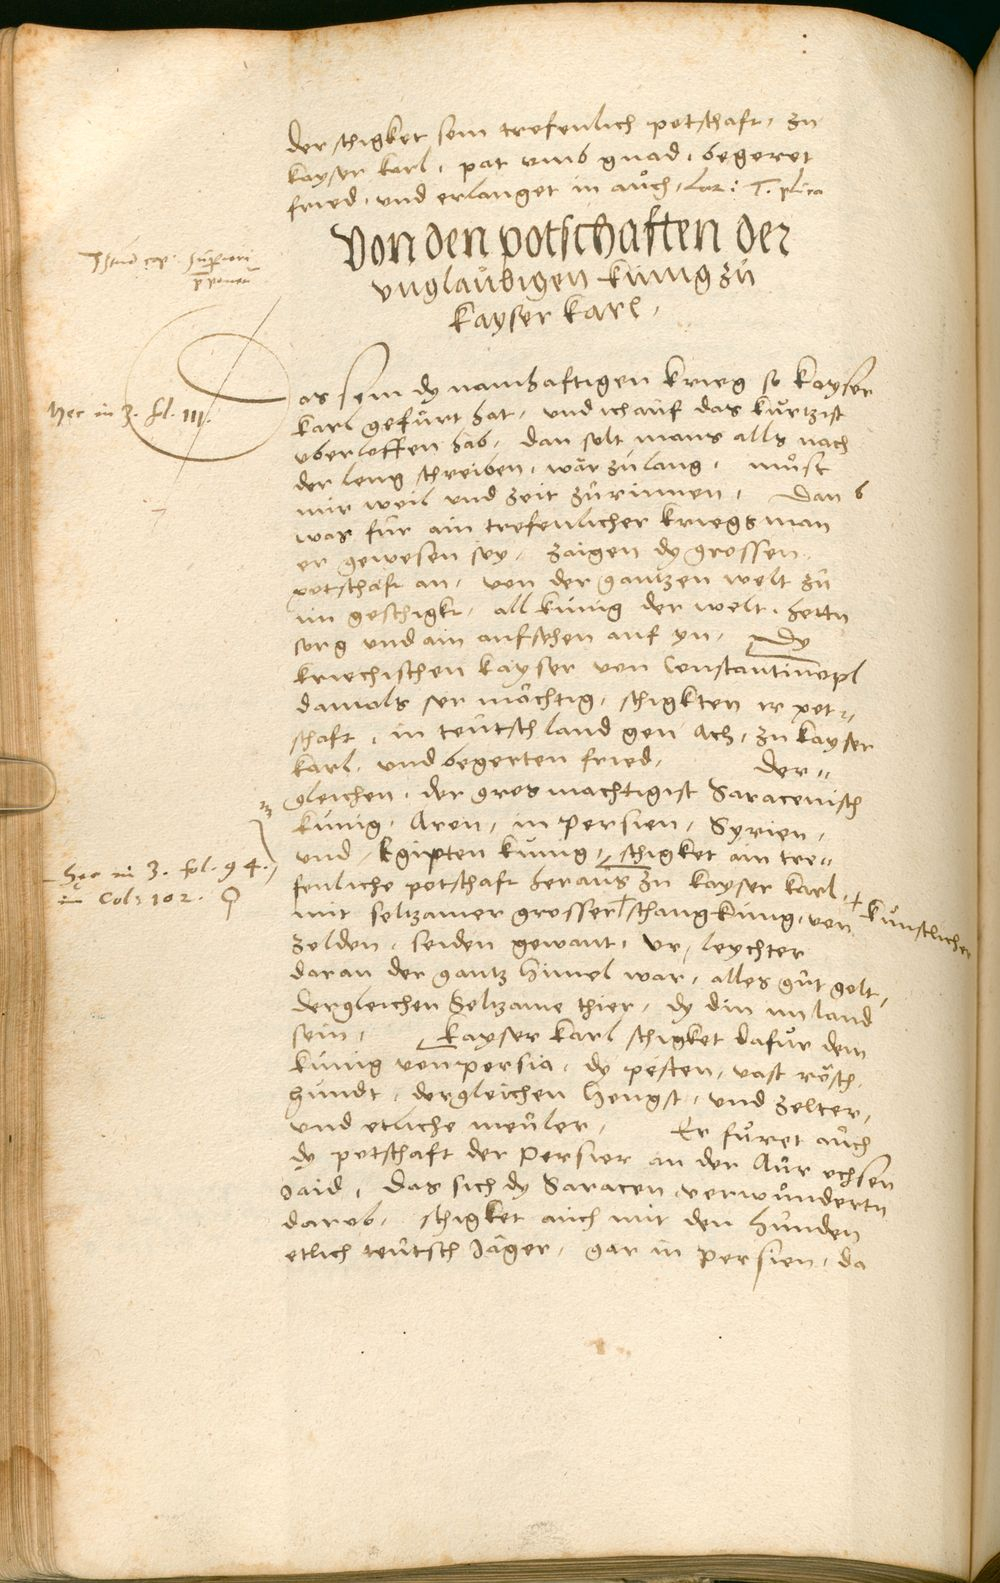 der schigket sein trefenlich potschaft, zu
kayser karl, pat umb gnad, begeret
fried, und erlanget in aůch,
Von den potschaften der
unglaubigen künig zů
kayser karl,
Das sein dy namhaftigen krieg so kayser
hec in 3. fol. III.
karl gefürt hat, und ich auf das kürtzist
uberloffen hab, dan solt mans alls nach
der leng schreiben, wär zu lang, můst
mir weil und zeit zůrinnen, Dan
was für ain trefenlicher kriegs man
er gewesen sey, zaigen dy grossen
potschaft an, von der gantzen welt zů
im geschigkt, all künig der welt, hettn
sorg und ain aufsehen auf yn, Dy
kriechischen kayser von Constantinopl
damals ser mächtig, schigkten ir pot„
schaft, in teutschland gen Ach, zu kayser
karl, und begerten fried, Der„
gleichen, der gros machtigist Saracenisch
künig, Aron, in Persien, Syrien,
und Egipten kunig, schigket ain tre„
hec in 3. fol. 94.
Col: 102.
fenliche potschaft heraus zu kayser karl,
mit seltzamer grosser + schangkung, von
+ künstlicher
zelden, seiden gewant, ur, leychter
daran der gantz himel war, alles gůt golt,
dergleichen Seltzame thier, dy din im land
sein, kayser karl schigket dafůr dem
künig von persia, dy pesten, vast rösch
hundt, dergleichen hengst, und zelter,
und etliche meüler, Er fůret aůch
dy potschaft der Persier an der Aůr ochsen
Jaid, Das sich dy Saracen verwůndertn
darob, schigket auch mit den hůnden
etlich teütsch Jäger, gar in Persien, da